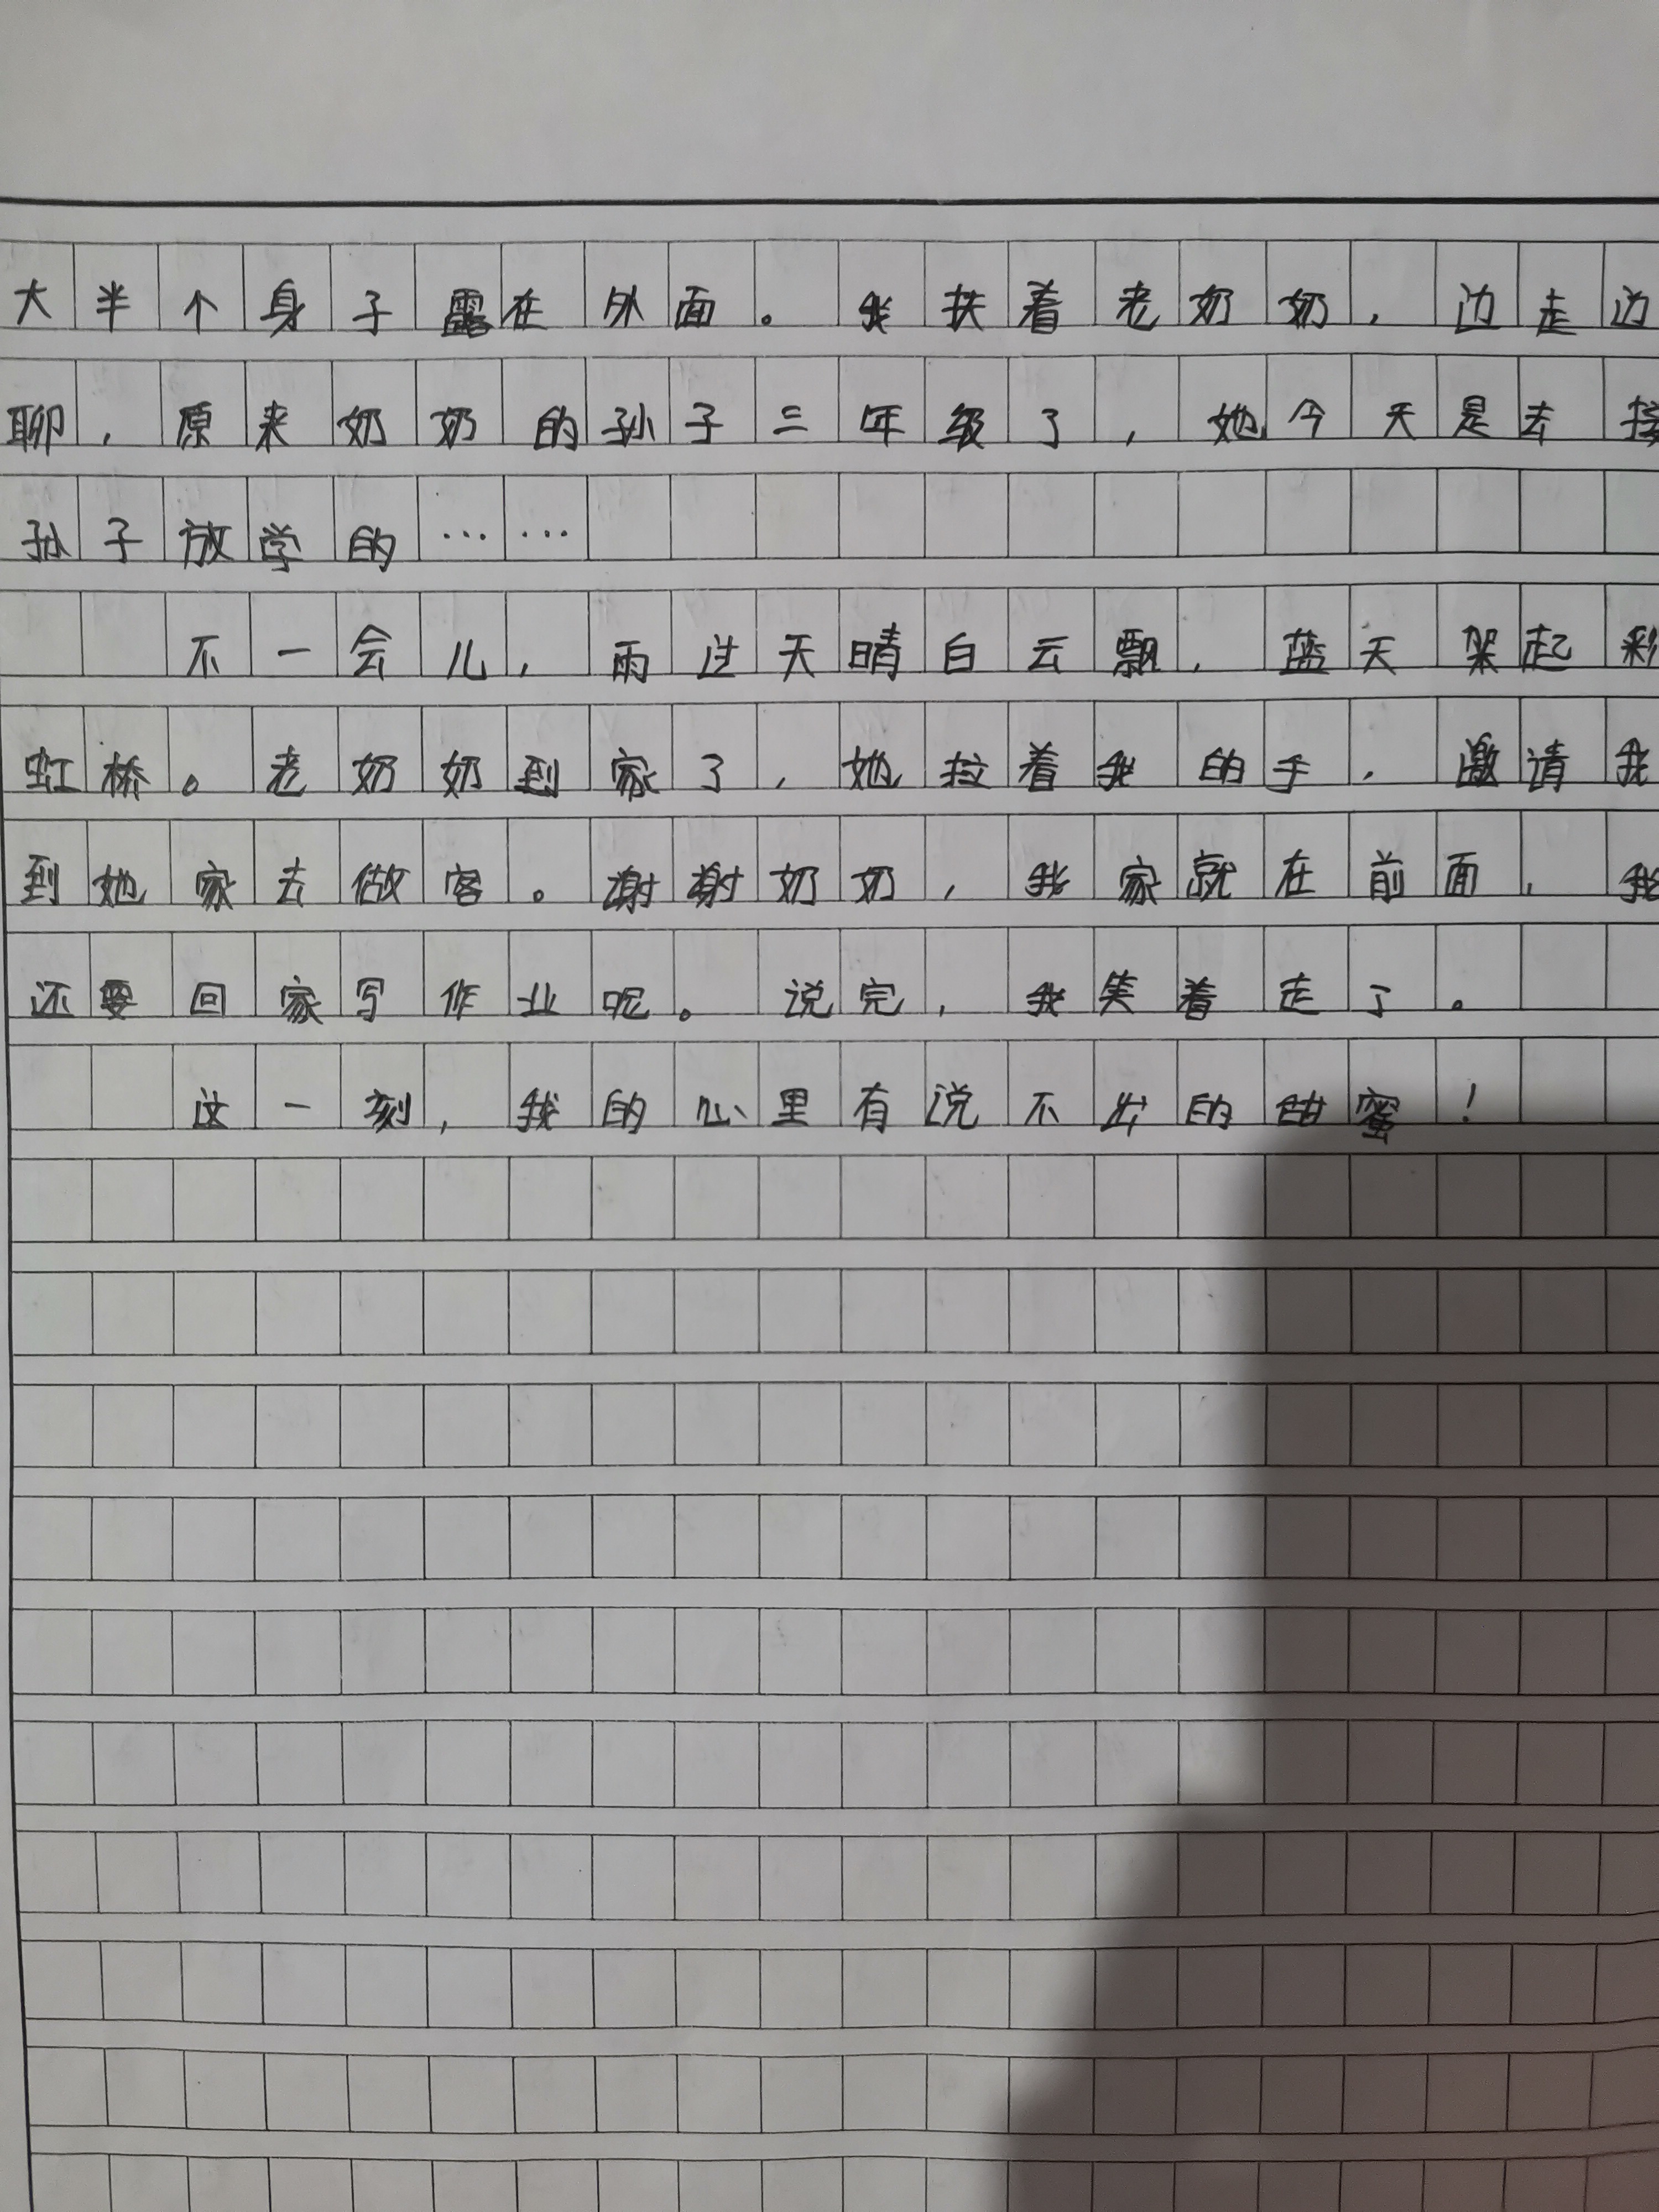 大半个身子露在外面。我扶着老奶奶，边走边
聊，原来奶奶的孙子三年级了，她今天是去接
孙子放学的……
不一会儿，雨过天晴白云飘，蓝天架起彩
虹桥。老奶奶到家了，她拉着我的手，邀请我
到她家去做客。谢谢奶奶，我家就在前面，我
还要回家写作业呢。说完，我笑着走了。
这一刻，我的心里有说不出的甜蜜！